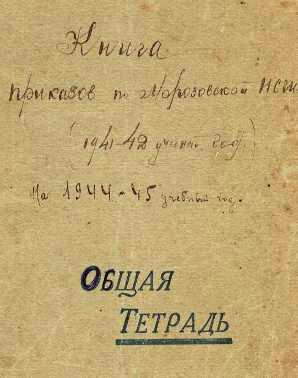 Книга
приказов по Морозовской НСШ
(1941-42 учебный год)
На 1944-45 учебный год.
ОБЩАЯ
ТЕТРАДЬ